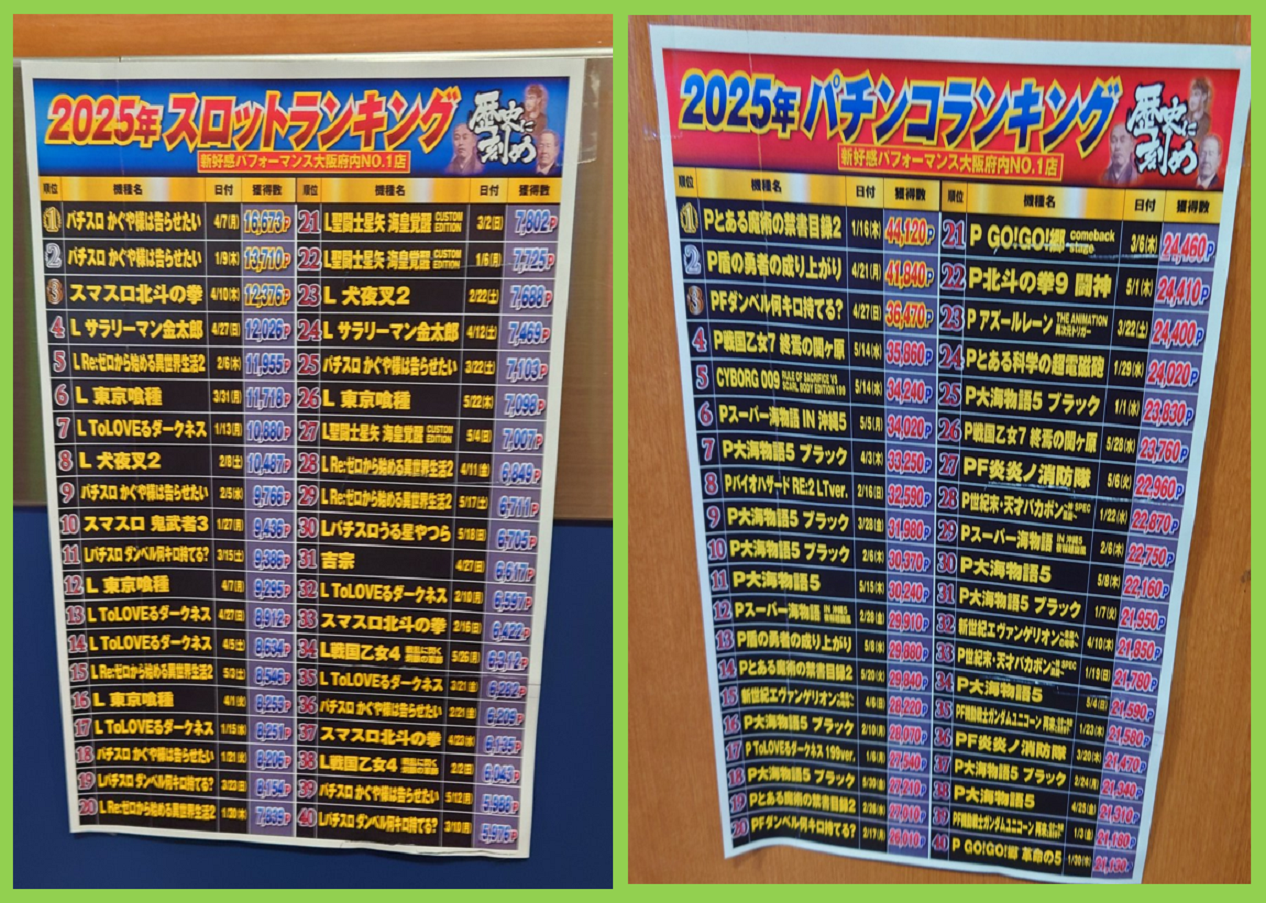 2025年 スロットランキング
歴史に刻め
新好感パフォーマンス大阪府内NO.1店
順位 機種名 日付 獲得数 順位 機種名 日付 獲得数
1 パチスロ かぐや様は告らせたい 4/7(月) 16,673P 21 L聖闘士星矢 海皇覚醒 CUSTOM EDITION 3/2(日) 7,802P
2 パチスロ かぐや様は告らせたい 1/9(木) 13,710P 22 L聖闘士星矢 海皇覚醒 CUSTOM EDITION 1/6(月) 7,725P
3 スマスロ北斗の拳 4/10(木) 12,376P 23 L 犬夜叉2 2/22(土) 7,688P
4 L サラリーマン金太郎 4/27(日) 12,026P 24 L サラリーマン金太郎 4/12(土) 7,469P
5 L Re:ゼロから始める異世界生活2 2/6(木) 11,955P 25 パチスロ かぐや様は告らせたい 3/22(土) 7,103P
6 L 東京喰種 3/31(月) 11,718P 26 L 東京喰種 5/22(木) 7,098P
7 L ToLOVEるダークネス 1/13(月) 10,880P 27 L聖闘士星矢 海皇覚醒 CUSTOM EDITION 5/4(日) 7,007P
8 L 犬夜叉2 2/8(土) 10,487P 28 L Re:ゼロから始める異世界生活2 4/11(金) 6,849P
9 パチスロ かぐや様は告らせたい 2/5(水) 9,766P 29 L Re:ゼロから始める異世界生活2 5/17(土) 6,711P
10 スマスロ 鬼武者3 1/27(月) 9,436P 30 Lパチスロうる星やつら 5/18(日) 6,705P
11 Lパチスロ ダンベル何キロ持てる? 3/15(土) 9,386P 31 吉宗 4/27(日) 6,617P
12 L 東京喰種 4/7(月) 9,295P 32 L ToLOVEるダークネス 2/10(月) 6,597P
13 L ToLOVEるダークネス 4/27(日) 8,912P 33 スマスロ北斗の拳 2/16(日) 6,422P
14 L ToLOVEるダークネス 4/5(土) 8,634P 34 L戦国乙女4 5/26(月) 6,312P
15 L Re:ゼロから始める異世界生活2 5/3(土) 8,546P 35 L ToLOVEるダークネス 3/21(金) 6,282P
16 L 東京喰種 4/1(火) 8,253P 36 パチスロ かぐや様は告らせたい 2/21(金) 6,209P
17 L ToLOVEるダークネス 1/15(水) 8,251P 37 スマスロ北斗の拳 4/23(水) 6,135P
18 パチスロ かぐや様は告らせたい 1/21(火) 8,206P 38 L戦国乙女4 2/2(日) 6,043P
19 Lパチスロ ダンベル何キロ持てる? 3/23(日) 8,154P 39 パチスロ かぐや様は告らせたい 5/12(月) 5,988P
20 L Re:ゼロから始める異世界生活2 1/30(木) 7,839P 40 Lパチスロ ダンベル何キロ持てる? 3/10(月) 5,979P
2025年 パチンコランキング
歴史に刻め
新好感パフォーマンス大阪府内NO.1店
順位 機種名 日付 獲得数 順位 機種名 日付 獲得数
1 Pとある魔術の禁書目録2 1/16(木) 44,120P 21 P GO!GO!郷 comeback stage 3/6(木) 24,460P
2 P盾の勇者の成り上がり 4/21(月) 41,840P 22 P北斗の拳9 闘神 5/1(木) 24,410P
3 PFダンベル何キロ持てる? 4/27(日) 36,470P 23 P アズールレーン THE ANIMATION 異次元トリガー 3/22(土) 24,400P
4 P戦国乙女7 終焉の関ヶ原 5/14(水) 35,860P 24 Pとある科学の超電磁砲 1/29(水) 24,020P
5 CYBORG 009 5/14(水) 34,240P 25 P大海物語5 ブラック 1/1(水) 23,830P
6 Pスーパー海物語 IN 沖縄5 5/5(月) 34,020P 26 P戦国乙女7 終焉の関ヶ原 5/28(水) 23,760P
7 P大海物語5 ブラック 4/3(木) 33,250P 27 PF炎炎ノ消防隊 5/6(火) 22,960P
8 Pバイオハザード RE:2 LTver. 2/16(日) 32,590P 28 P世紀末・天才バカボン 1/22(水) 22,870P
9 P大海物語5 ブラック 3/28(金) 31,980P 29 Pスーパー海物語 IN 沖縄5 2/6(木) 22,750P
10 P大海物語5 ブラック 2/6(木) 30,370P 30 P大海物語5 5/8(木) 22,160P
11 P大海物語5 5/15(木) 30,240P 31 P大海物語5 ブラック 1/7(火) 21,950P
12 Pスーパー海物語 IN 沖縄5 2/28(金) 29,910P 32 新世紀エヴァンゲリオン 4/10(木) 21,850P
13 P盾の勇者の成り上がり 5/8(木) 29,880P 33 P世紀末・天才バカボン 1/19(日) 21,780P
14 Pとある魔術の禁書目録2 5/20(火) 29,840P 34 P大海物語5 5/4(日) 21,590P
15 新世紀エヴァンゲリオン 4/6(日) 28,220P 35 PF機動戦士ガンダムユニコーン 1/23(木) 21,580P
16 P大海物語5 ブラック 2/10(月) 28,070P 36 PF炎炎ノ消防隊 3/20(木) 21,470P
17 P ToLOVEるダークネス 199ver. 1/6(月) 27,540P 37 P大海物語5 ブラック 2/24(月) 21,340P
18 P大海物語5 ブラック 27,210P 38 P大海物語5 4/25(金) 21,310P
19 Pとある魔術の禁書目録2 27,010P 39 PF機動戦士ガンダムユニコーン 1/3(金) 21,180P
20 PFダンベル何キロ持てる? 2/17(月) 26,010P 40 P GO!GO!郷 革命の5 1/30(木) 21,130P